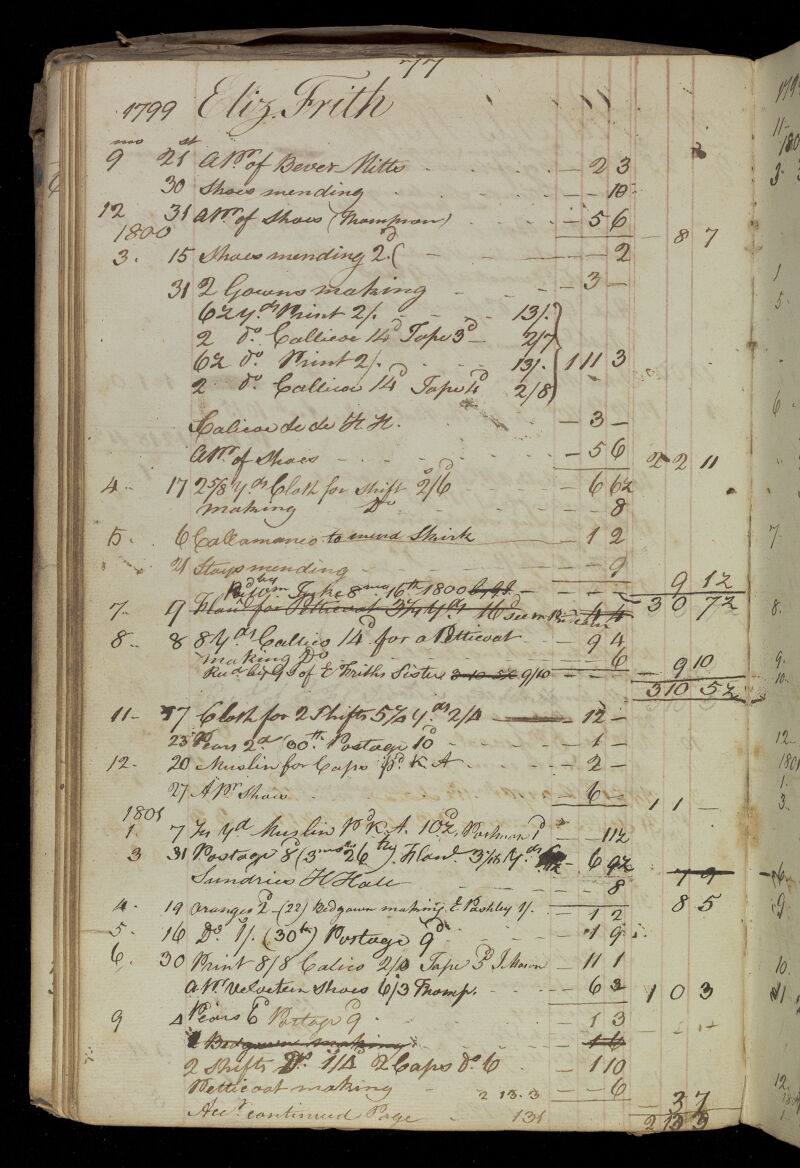 77
1799 Eliz. Frith
mo st
9 21 A Pr. of Bever Mitts - 2 3
30 Shoes mending - - 10
12 31 A Pr. of Shoes (Thompson) - 5 6
- 8 7
1800
3. 15 Shoes mending 2d ( - - 2
31 2 Gowns making - 3 -
6½ yds Print 2/. 13/.
2 do. Callicoe 14d Tape 3d - 2/7
6½ do. Print 2/. 13/. 1 11 3
2 do. Callicoe 14d Tape 4d 2/8
Calicoe de de H. H. - 3 -
A Pr. of Shoes - 5 6
2 2 11
4.. 17 2 5/8 yds Cloth for Shift 2/6 - 6 6½
making Do - - 8
5. 6 Callamanco to mend Skirk - 1 2
21 Stays mending - - 9
9 1½
Pd by Wm. Tuke 8mo. 16th 1800
3 0 7½
7.. 9 Flanl for Petticoat 3¼ yds 16d 4 4
8.. 8 8 yds Callico 14d for a Petticoat - 9 4
making Do - - 6
- 9 10
Recd by G. of E Friths Sister 3-10-5½ 9/10
3 10 5½
11- 17 Cloth for 2 Shifts 5¼ yds 2/4 - 12 -
23d Pears 2d 30th. Postage 10d - 1 -
12. 20 Muslin for Caps pd. K A - 2 -
27 A Pr Shoes - 6 -
1 1 -
1801
1. 7 yd Muslin Pd K. A. 10½, Postman 1d - - 11½
3 31 Postage 8d (3mo 26th) Flanl. yds - 6 9½
Sundries H Hall - - 8
7 9
8 5
4. 19 Oranges 2d - (22) Bedgown making E Pashley 1/. - 1 2
5. 16 Do. 1/. (30th) Postage 9d - 1 9
6. 30 Print 8/8 Calico 2/0 Tape 5d J. Mason - 11 1
A Pr Velveteen Shoes 6/3 Thomp. - 6 3
1 0 3
9 4 Pears 6d Postage 9d - 1 3
1 Bedgown making - 1 6
2 Shifts Do. 1/4 2 Caps do. 6 - 1 10
Petticoat making - - 6
2 13. 3
- 3 7
Acct. continued Page 131
2 13 3